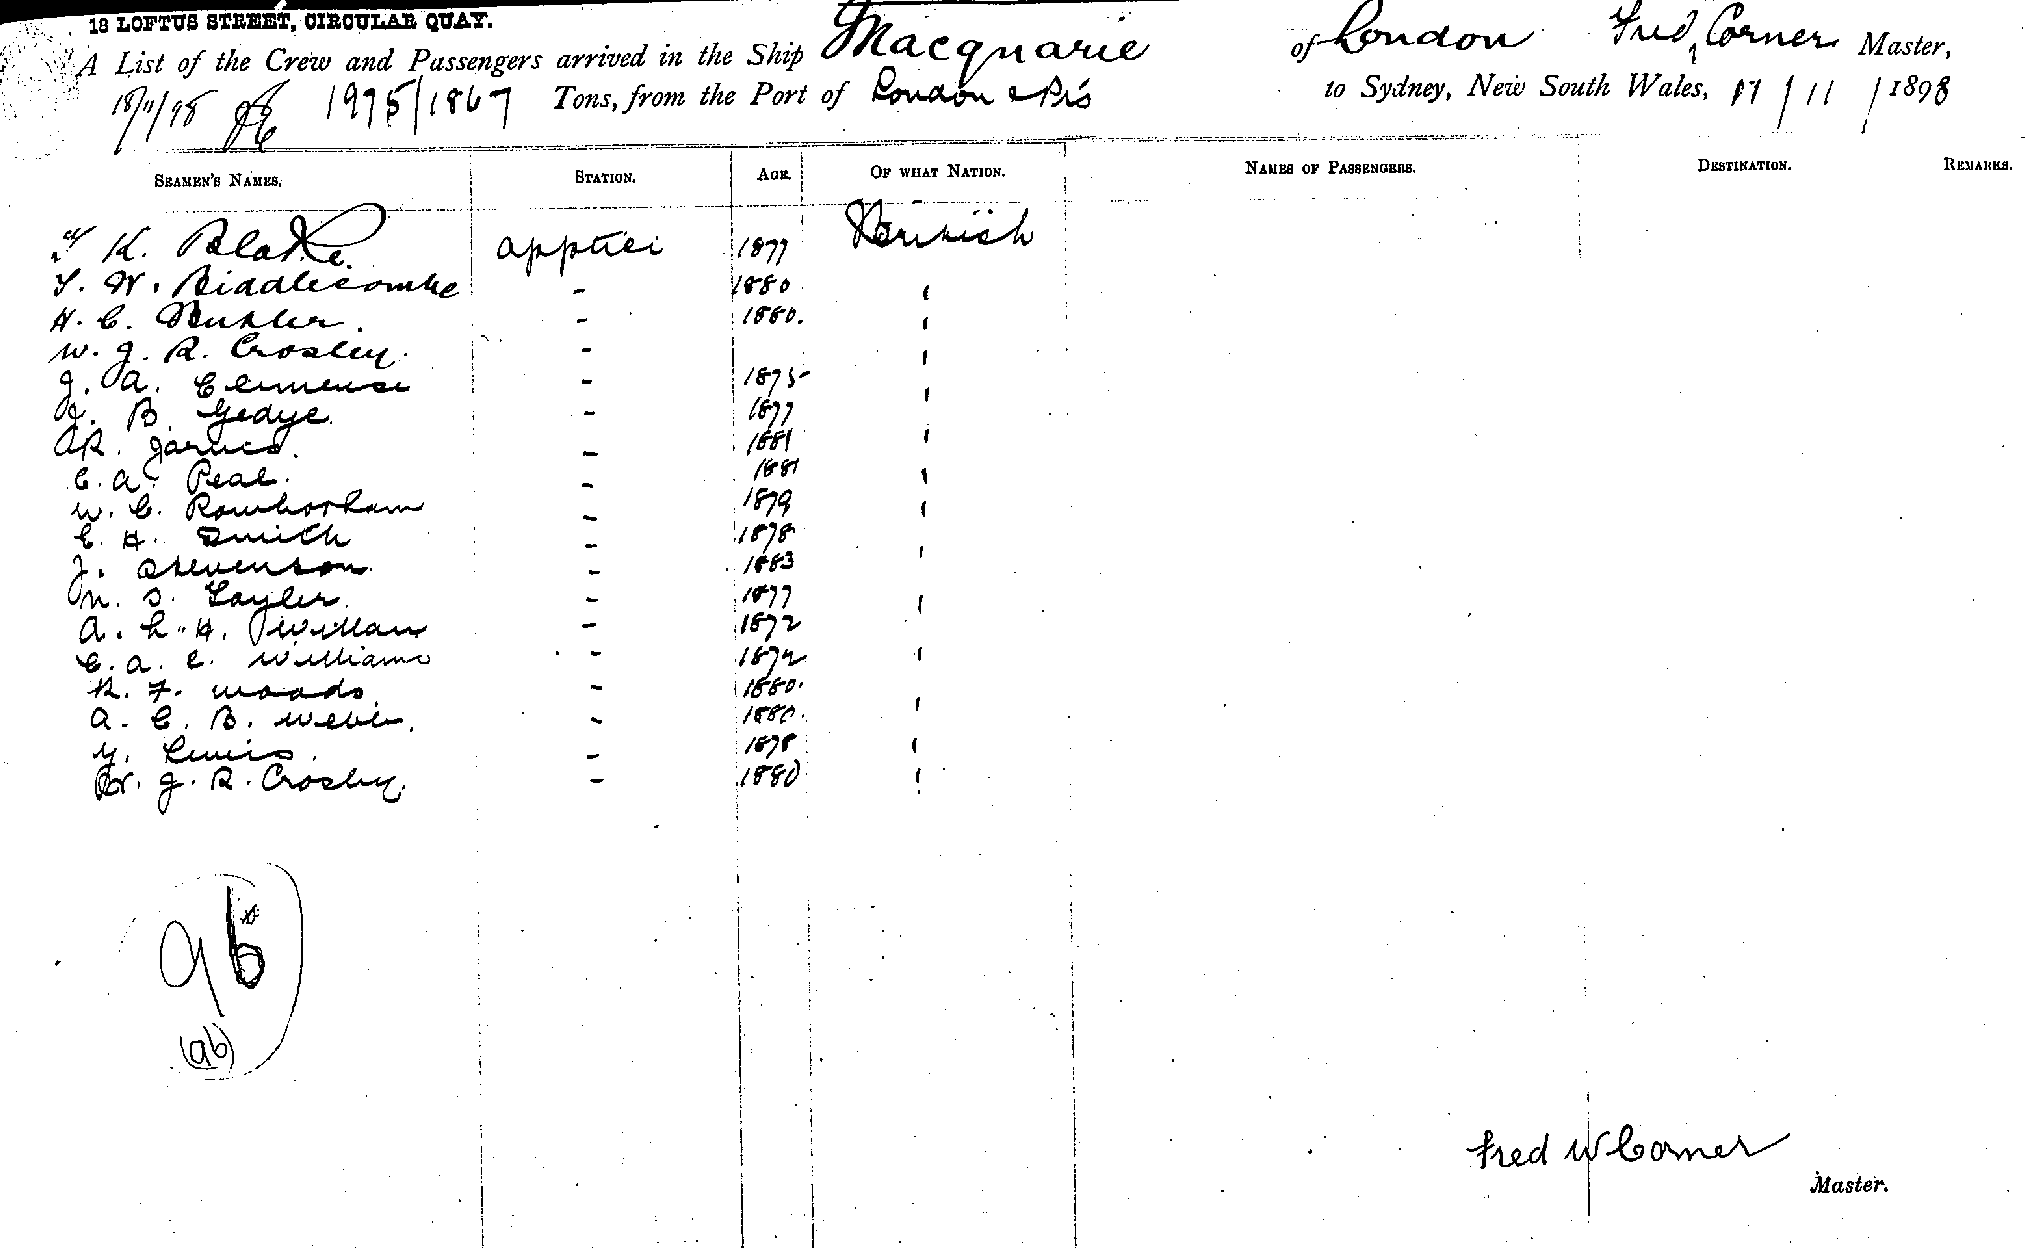 18 LOFTUS STREET, CIRCULAR QUAY.
A List of the Crew and Passengers arrived in the Ship Macquarie of London Fred, Corner Master,
18/11/98 1975/1867 Tons, from the Port of London to Sydney, New South Wales, 17/11/1898
SEAMEN'S NAMES. STATION. AGE. OF WHAT NATION. NAMES OF PASSENGERS. DESTINATION. REMARKS.
K. Blake 1877 British
W. Biddlecombe - 1880 '
H. C. - 1880. '
W. J. R. Crosley. - '
J. A. - 1875 '
B. Gedye. - 1877 '
A R. Jarvis. - 1881 '
C. A. Peal. - 1881 '
W. C. - 1879 '
C. H. Smith - 1878
J. Stevenson. - 1883 '
N. S. Tayler. - 1877 '
A. L. H. Willan - 1872
C. A. C. Williams - 1874 '
R. F. Woods. - 1880.
A. C. B. Webb. - 1880. '
Y. Lewis. - 1878 '
W. J. R. Crosley. - 1880 '
96
(96)
Fred W Corner
Master.